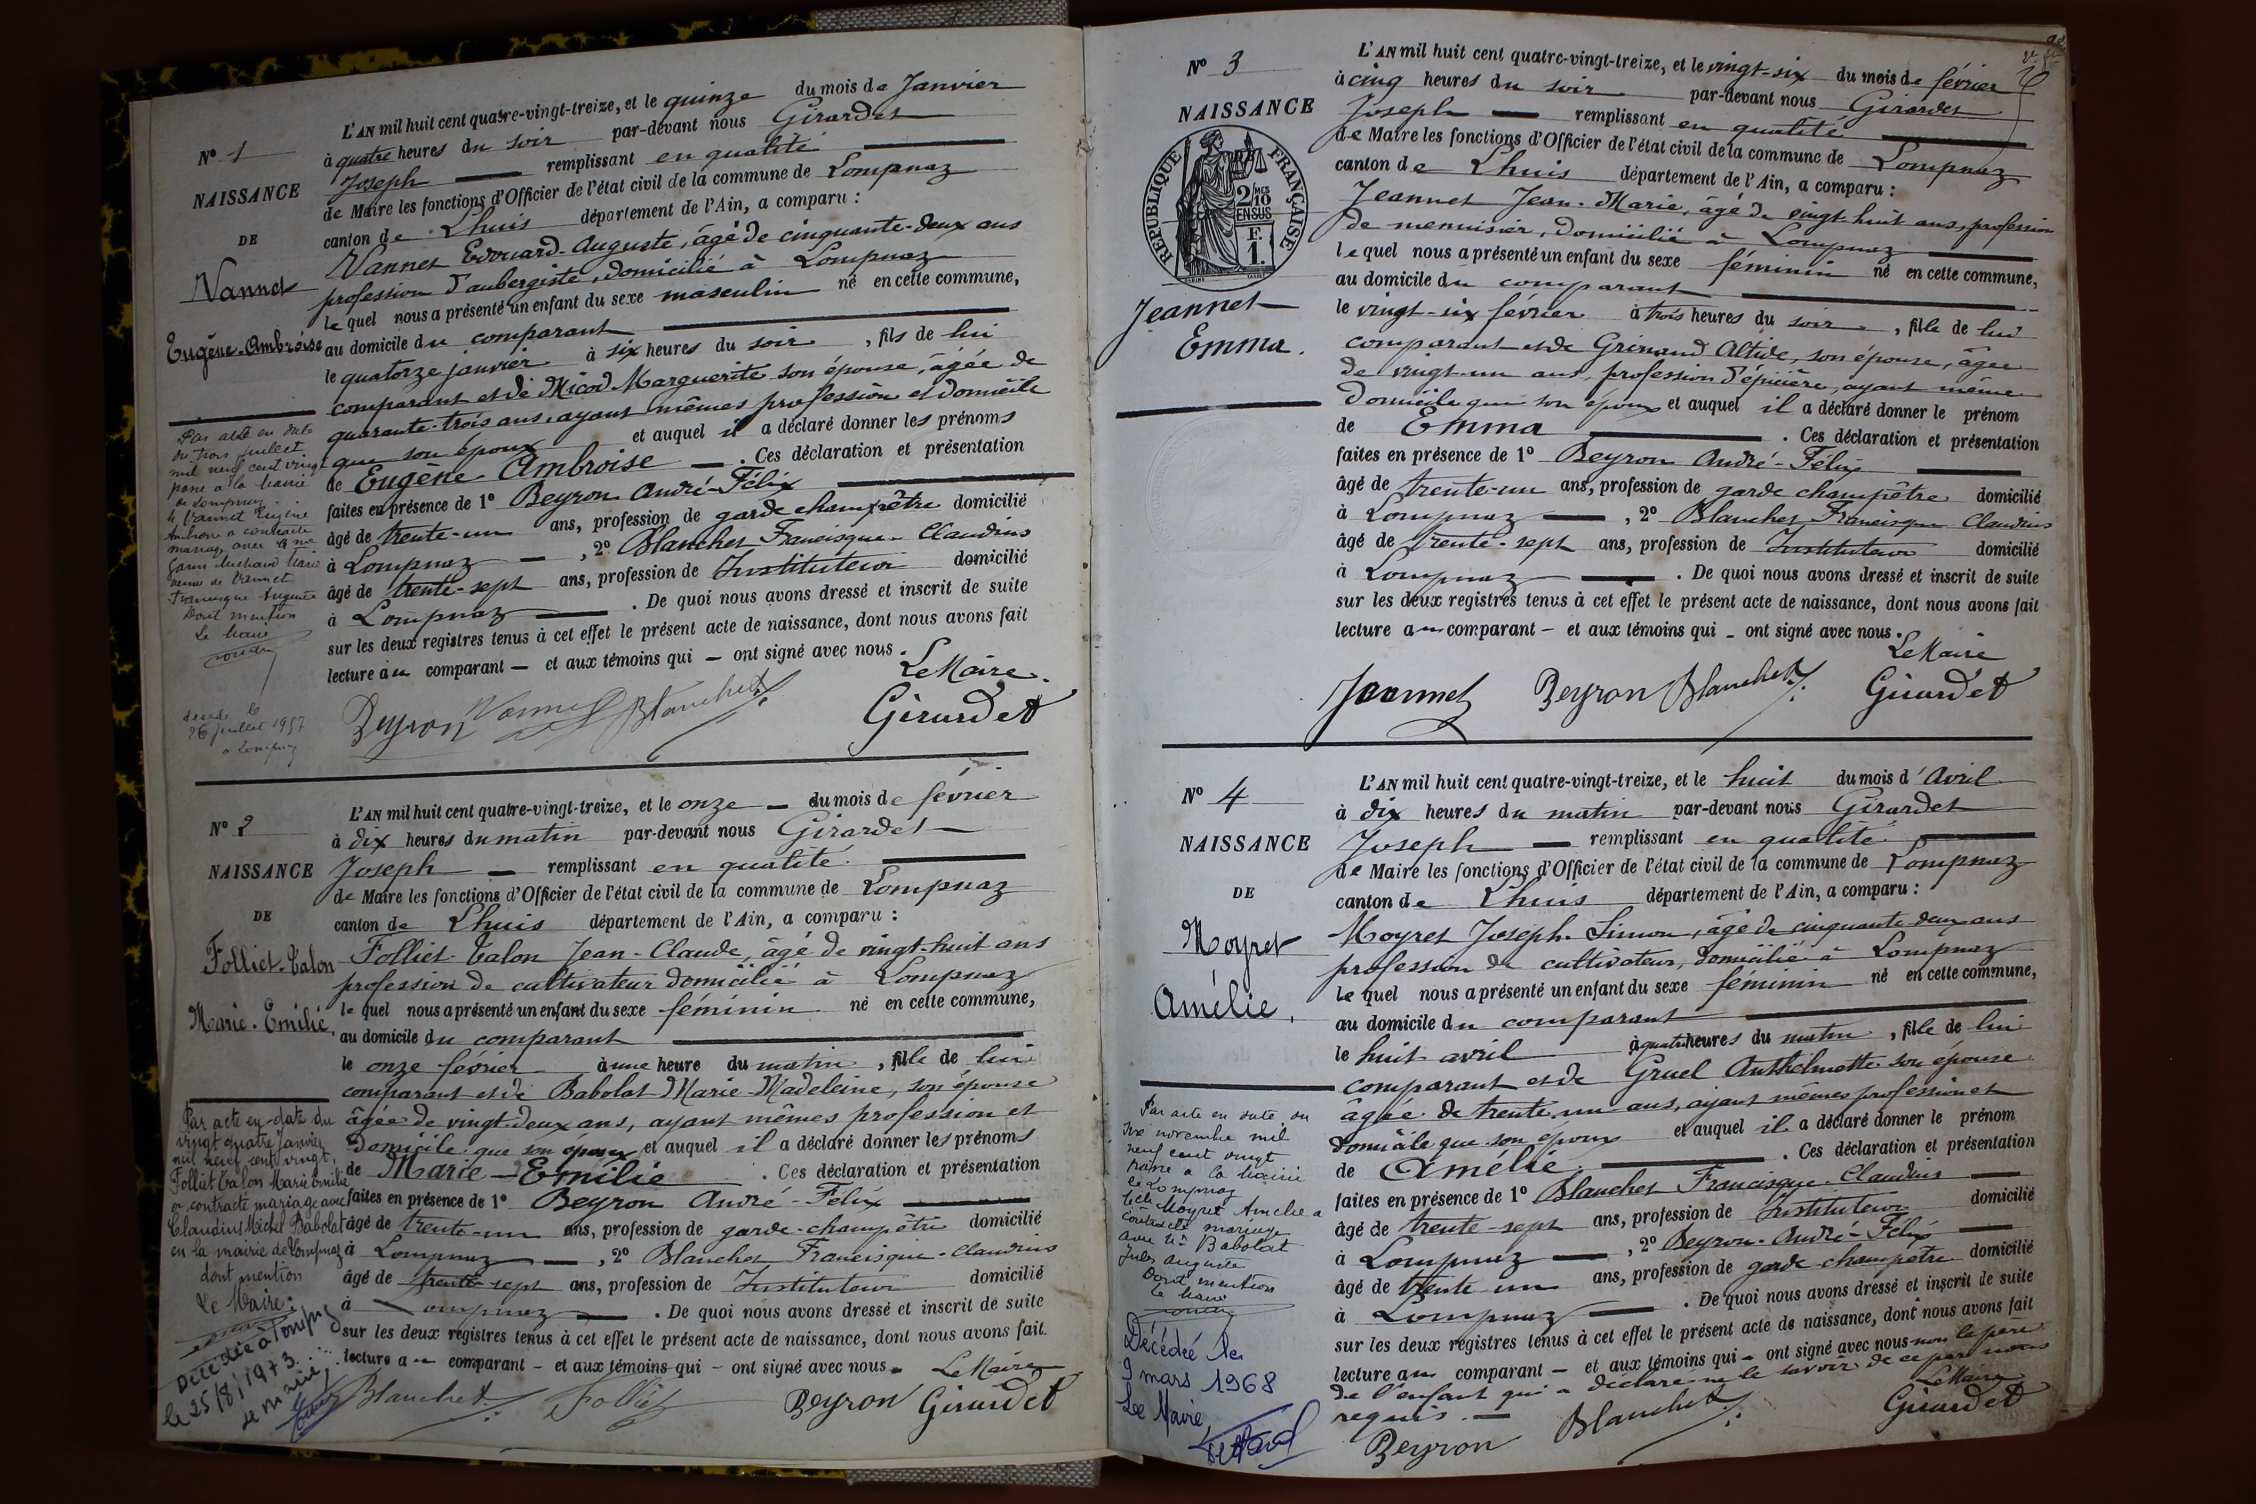 L'AN mil huit cent quatre-vingt-treize, et le quinze du mois de Janvier
N° 1
à quatre heures du soir par-devant nous Girardet
Joseph remplissant en qualité
NAISSANCE
de Maire les fonctions d'Officier de l'état civil de la commune de Lompnaz
DE
canton de Lhuis département de l'Ain, a comparu :
Vannet Edouard-Auguste, âgé de cinquante-deux ans
Vannet
profession d'aubergiste, domicilié à Lompnaz
lequel nous a présenté un enfant du sexe masculin né en cette commune,
Eugène-Ambroise
au domicile du comparant
le quatorze janvier à six heures du soir, fils de lui
comparant et de Micod Marguerite son épouse, âgée de
quarante-trois ans, ayant mêmes profession et domicile
que son époux et auquel il a déclaré donner les prénoms
de Eugène Ambroise. Ces déclaration et présentation
faites en présence de 1° Beyron André-Félix
âgé de trente-un ans, profession de garde champêtre domicilié
à Lompnaz, 2° Blanchet Francisque-Claudius
âgé de trente-sept ans, profession de Instituteur domicilié
à Lompnaz. De quoi nous avons dressé et inscrit de suite
sur les deux registres tenus à cet effet le présent acte de naissance, dont nous avons fait
lecture au comparant – et aux témoins qui – ont signé avec nous.
Le Maire.
Beyron Vannet Blanchet Girardet
Par acte en date
du trois juillet
mil neuf cent vingt
passé à la mairie
de Lompnaz
le Vannet Eugène
Ambroise a contracté
mariage avec
veuve de Vannet
Francisque Auguste
Dont mention
Le Maire
décédé le
26 juillet 1957
à Lompnaz
L'AN mil huit cent quatre-vingt-treize, et le onze du mois de février
N° 2
à dix heures du matin par-devant nous Girardet
NAISSANCE
Joseph remplissant en qualité
de Maire les fonctions d'Officier de l'état civil de la commune de Lompnaz
DE
canton de Lhuis département de l'Ain, a comparu :
Folliet-Talon
Folliet-Talon Jean-Claude, âgé de vingt-huit ans
profession de cultivateur domicilié à Lompnaz
Marie-Emilie,
lequel nous a présenté un enfant du sexe féminin né en cette commune,
au domicile du comparant
le onze février à une heure du matin, fille de lui
comparant et de Babolat Marie-Madeleine, son épouse
âgée de vingt-deux ans, ayant mêmes profession et
domicile que son époux et auquel il a déclaré donner les prénoms
de Marie-Emilie. Ces déclaration et présentation
faites en présence de 1° Beyron André-Félix
âgé de trente-un ans, profession de garde-champêtre domicilié
à Lompnaz, 2° Blanchet Francisque-Claudius
âgé de trente-sept ans, profession de Instituteur domicilié
à Lompnaz. De quoi nous avons dressé et inscrit de suite
sur les deux registres tenus à cet effet le présent acte de naissance, dont nous avons fait
lecture au comparant – et aux témoins qui – ont signé avec nous.
Le Maire
Blanchet Folliet Beyron Girardet
Par acte en date du
vingt quatre Janvier
mil neuf cent vingt,
Folliet Talon Marie Emilie
a contracté mariage avec
Claudius Michel Babolat
en la mairie de Lompnaz
dont mention
Le Maire:
Décédée à Lompnaz
le 25/8/1973
Le Maire,
N° 3
L'AN mil huit cent quatre-vingt-treize, et le vingt-six du mois de février
à cinq heures du soir par-devant nous Girardet
NAISSANCE
Joseph remplissant en qualité
de Maire les fonctions d'Officier de l'état civil de la commune de Lompnaz
canton de Lhuis département de l'Ain, a comparu :
RÉPUBLIQUE FRANÇAISE
RF
2/10 MES
EN SUS
F.
1.
Jeannet Jean-Marie, âgé de vingt huit ans, profession
de menuisier, domicilié à Lompnaz
lequel nous a présenté un enfant du sexe féminin né en cette commune,
au domicile du comparant
Jeannet
le vingt-six février à trois heures du soir, fille de lui
Emma.
comparant et de Grinand Altide, son épouse, âgée
de vingt-un ans, profession d'épicière, ayant même
domicile que son époux et auquel il a déclaré donner le prénom
de Emma. Ces déclaration et présentation
faites en présence de 1° Beyron André-Félix
âgé de trente-un ans, profession de garde champêtre domicilié
à Lompnaz, 2° Blanchet Francisque Claudius
âgé de trente-sept ans, profession de Instituteur domicilié
à Lompnaz. De quoi nous avons dressé et inscrit de suite
sur les deux registres tenus à cet effet le présent acte de naissance, dont nous avons fait
lecture au comparant – et aux témoins qui – ont signé avec nous.
Le Maire
Jeannet Beyron Blanchet Girardet
L'AN mil huit cent quatre-vingt-treize, et le huit du mois d'Avril
N° 4
à dix heures du matin par-devant nous Girardet
NAISSANCE
Joseph remplissant en qualité
de Maire les fonctions d'Officier de l'état civil de la commune de Lompnaz
DE
canton de Lhuis département de l'Ain, a comparu :
Moyret
Moyret Joseph-Simon, âgé de cinquante-deux ans
profession de cultivateur, domicilié à Lompnaz
Amélie.
lequel nous a présenté un enfant du sexe féminin né en cette commune,
au domicile du comparant
le huit avril à quatre heures du matin, fille de lui
comparant et de Gruel Anthelmette son épouse
âgée de trente-un ans, ayant mêmes profession et
domicile que son époux et auquel il a déclaré donner le prénom
de Amélie. Ces déclaration et présentation
faites en présence de 1° Blanchet Francisque-Claudius
âgé de trente-sept ans, profession de Instituteur domicilié
à Lompnaz, 2° Beyron-André-Félix
âgé de trente un ans, profession de garde-champêtre domicilié
à Lompnaz. De quoi nous avons dressé et inscrit de suite
sur les deux registres tenus à cet effet le présent acte de naissance, dont nous avons fait
lecture au comparant – et aux témoins qui – ont signé avec nous non le père
de l'enfant qui a déclaré ne le savoir de ce par nous
requis.
Le Maire
Beyron Blanchet Girardet
Par acte en date du
novembre mil
neuf cent vingt
passé à la Mairie
de Lompnaz
Moyret Amélie a
contracté mariage
avec Mr Babolat
Jules Auguste
Dont mention
Le Maire
Décédée le
9 mars 1968
Le Maire,